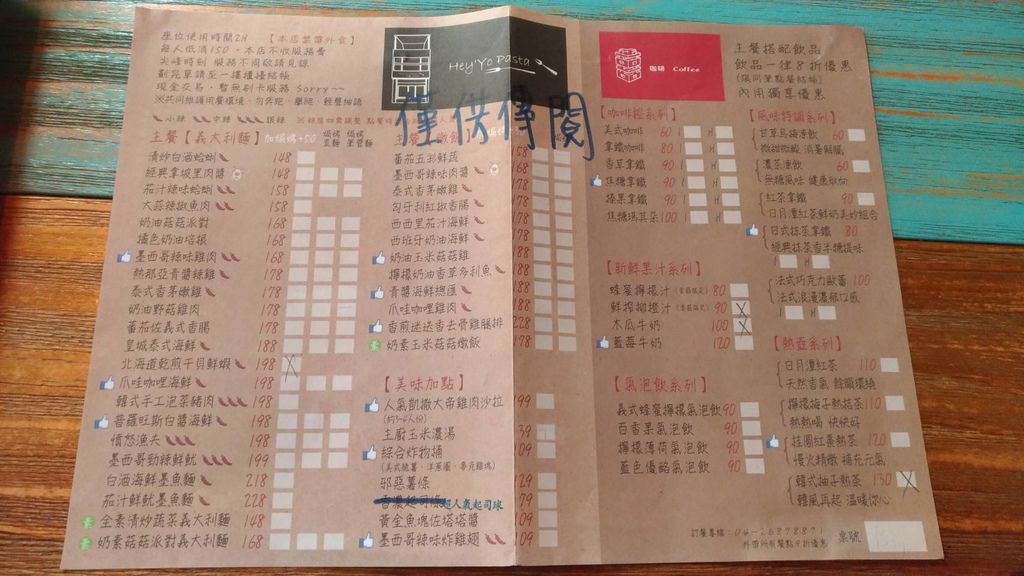 座位使用時間2H 【本店禁帶外食】
每人低消150,本店不收服務費
尖峰時刻 服務不周敬請見諒
劃完單請至一樓櫃檯結帳
現金交易,暫無刷卡服務 Sorry~~
Hey!Yo Pasta
僅供傳閱
小辣 中辣 很辣
主餐【義大利麵】
清炒白酒蛤蜊 148
經典拿坡里肉醬 148
茄汁辣味蛤蜊 158
大蒜辣椒魚肉 158
奶油菇菇派對 168
橘色奶油培根 168
墨西哥辣味雞肉 168
熱那亞青醬辣雞 178
泰式香茅嫩雞 178
奶油野菇雞肉 178
蕃茄佐義式香腸 178
皇城泰式海鮮 188
北海道乾煎干貝鮮蝦 198
爪哇咖哩海鮮 198
韓式手工泡菜豬肉 198
普羅旺斯白醬海鮮 198
憤怒漁夫 198
墨西哥勁辣鮮魷 199
白酒海鮮墨魚麵 218
茄汁鮮魷墨魚麵 228
全素清炒蔬菜義大利麵 148
奶素菇菇派對義大利麵 168
蕃茄五彩鮮蔬
墨西哥辣味肉醬
泰式香茅嫩雞
匈牙利紅椒香腸
西西里茄汁海鮮
西班牙奶油海鮮
奶油玉米菇菇雞
檸檬奶油香草多利魚
青醬海鮮總匯
爪哇咖哩雞肉
香煎迷迭香去骨雞腿排
奶素玉米菇菇燉飯
【美味加點】
人氣凱撒大帝雞肉沙拉
主廚玉米濃湯
綜合炸物桶
邪惡薯條
超人氣起司球
黃金魚塊佐塔塔醬
墨西哥辣味炸雞翅
咖啡 Coffee
主餐搭配飲品
飲品一律8折優惠
(限同筆點餐結帳)
內用獨享優惠
【咖啡控系列】
美式咖啡 60 I H
拿鐵咖啡 80 I H
香草拿鐵 90 I H
焦糖拿鐵 90 I H
榛果拿鐵 90 I H
焦糖瑪其朵 100 I H
【新鮮果汁系列】
蜂蜜檸檬汁 80
鮮榨柳橙汁 90
木瓜牛奶 100
藍莓牛奶 120
【氣泡飲系列】
義式蜂蜜檸檬氣泡飲 90
百香果氣泡飲 90
檸檬薄荷氣泡飲 90
藍色優酪氣泡飲 90
【風味特調系列】
甘草烏梅凍飲 60
微甜微酸 消暑解膩
濃茶凍飲 60
無糖風味 健康取向
紅茶拿鐵 90
日月潭紅茶鮮奶美妙組合
日式抹茶拿鐵 80
經典抹茶香手機提味
I H
法式巧克力歐蕾 100
法式浪漫濃郁口感
I H
【熱壺系列】
日月潭紅茶 110
天然香氣 餘韻環繞
檸檬梅子熱菇茶 110
熱熱喝 快快好
桂圓紅棗熱茶 120
慢火精燉 補充元氣
韓式柚子熱茶 130
韓風再起 溫暖你心
訂餐專線:04-26878871
外帶所有餐點9折優惠
桌號